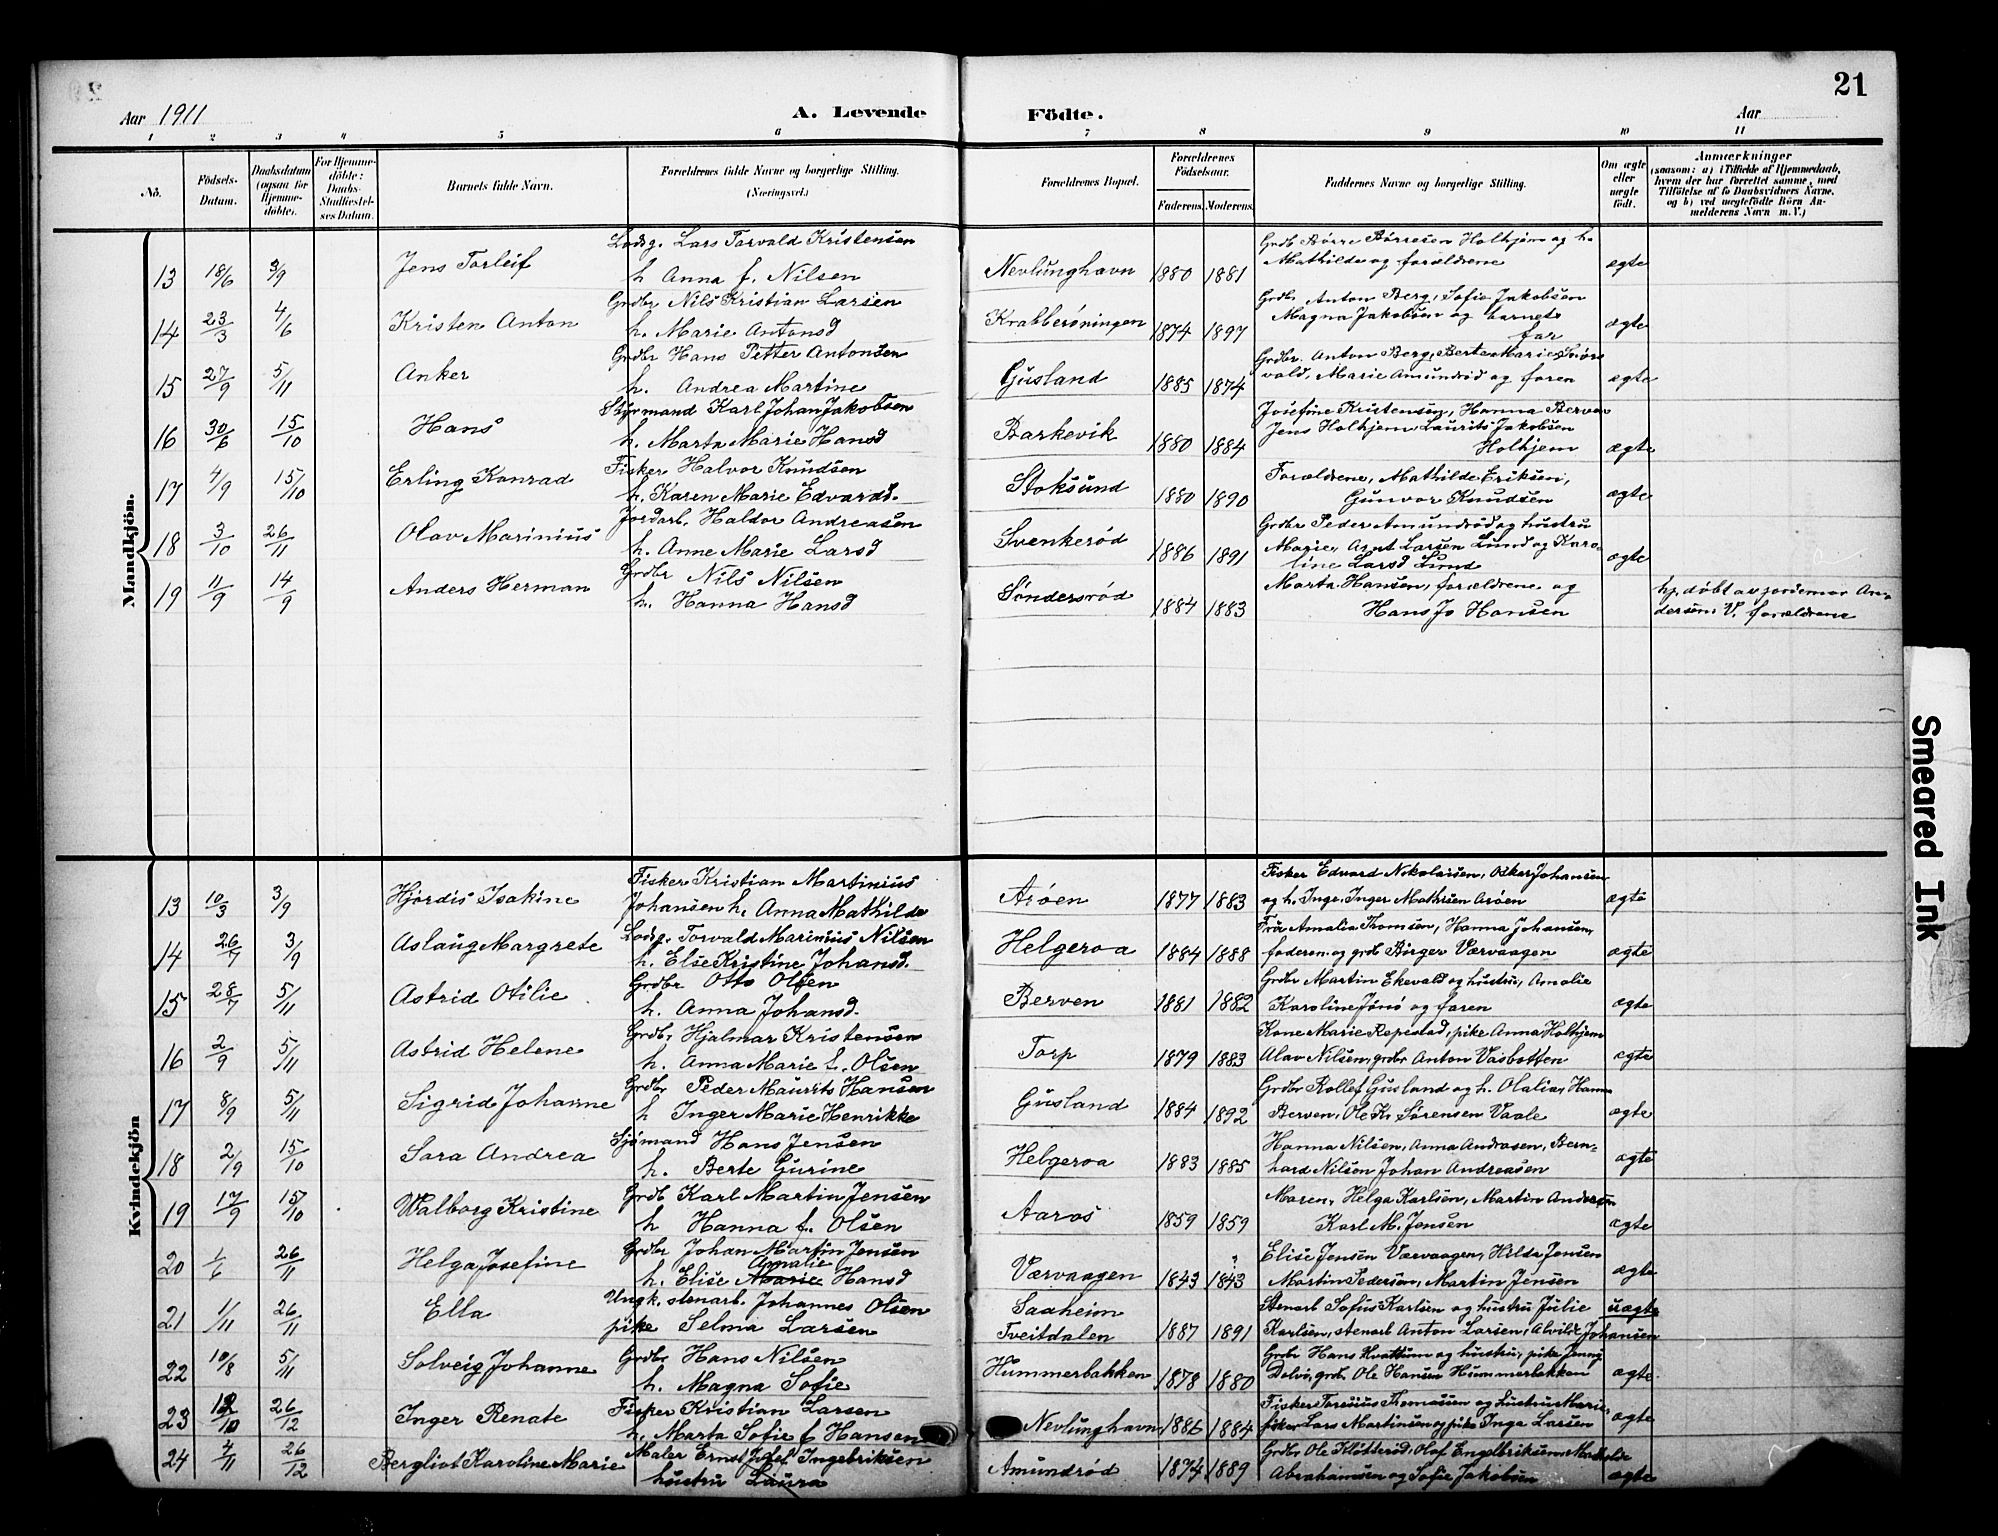 21
Aar 1911
A. Levende
Födte.
Aar
1 2 3 4 5 6 7 8 9 10 11
No.
Födsels-Datum.
Daabsdatum (ogsaa for Hjemme-döbte).
For Hjemme-döbte: Daabs-Stadfæstel-ses Datum.
Barnets fulde Navn.
Forældrenes fulde Navne og borgerlige Stilling. (Næringsvei.)
Forældrenes Bopæl.
Forældrenes Födselsaar.
Faderens. Moderens.
Faddernes Navne og borgerlige Stilling.
Om ægte eller uægte födt.
Anmærkninger
(saasom: a) i Tilfælde af Hjemmedaab, hvem der har forrettet samme, med Tilföielse af to Daabsvidners Navne, og b) ved uægtefödte Börn An-melderens Navn m. V.)
Mandkjön.
13 18/6 3/9 Jens Torleif Lodsg. Lars Torvald Kristensen
h Anna f. Nilsen Nevlunghavn 1880 1881 Grdb Børre Børresen Holhjem og h.
Mathilde og forældrene ægte
14 23/3 4/6 Kristen Anton Grdbr Nils Kristian Larsen
h. Marie Antonsd Krabberøningen 1874 1897 Grdbr Anton Berg, Sofie Jakobsen
Magna Jakobsen og barnets
far ægte
15 27/9 5/11 Anker Grdbr Hans Petter Antonsen
h. Andrea Martine Gusland 1885 1874 Grdbr. Anton Berg, Berte Marie
vold, Marie Amundrød og faren ægte
16 30/6 15/10 Hans Styrmand Karl Johan Jakobsen
h. Marta Marie Hansd Barkevik 1880 1884 Josefine Kristensen, Hanna Berven
Jens Holhjem, Laurits Jakobsen
Holhjem ægte
17 4/9 15/10 Erling Konrad Fisker Halvor Knudsen
h. Karen Marie Edvardd. Stoksund 1880 1890 Forældrene, Mathilde Eriksen,
Gunvor Knudsen ægte
18 3/10 26/11 Olav Marinius Jordarb. Haldor Andreasen
h. Anne Marie Larsd Svenkerød 1886 1891 Grdbr Peder Amundrød og hustru
Marie, Arnt Larsen Lund og Karo-
line Larsd Lund ægte
19 11/9 14/9 Anders Herman Grdbr Nils Nilsen
h. Hanna Hansd Søndersrød 1884 1883 Marta Hansen, forældrene og
Hans Jo Hansen hj. døbt av jordemor An-
dersen. V. forældrene
Kvindekjön
13 10/3 3/9 Hjørdis Isakine Fisker Kristian Martinius
Johansen h. Anna Mathilde Arøen 1877 1883 Fisker Edvard Nikolaisen, Oskar Johansen
og h. Inge. Inger Mathisen Arøen ægte
14 26/7 3/9 Aslaug Margrete Lodsg. Torvald Marinius Nilsen
h. Else Kristine Johansd. Helgeroa 1884 1888 Fru Amalia Thomsen, Hanna Johansen,
faderen og grdb Birger Værvaagen ægte
15 28/7 5/11 Astrid Otilie Grdbr Otto Olsen
h. Anna Johansd. Berven 1881 1882 Grdbr Martin Ekevald og hustru, Amalie
Karoline Jønø og faren ægte
16 2/9 5/11 Astrid Helene Grdbr. Hjalmar Kristensen
h. Anna Marie f. Olsen Torp 1879 1883 Kone Marie Repestad, pike Anna Holhjem
Alav Nilsen, grdbr Anton Vasbotten ægte
17 8/9 5/11 Sigrid Johanne Grdbr Peder Maurits Hansen
h Inger Marie Henrikke Gusland 1884 1892 Grdbr Rollef Gusland og h. Olalia, Hanna
Berven, Ole Kr Sørensen Vaale ægte
18 2/9 15/10 Sara Andrea Sjømand Hans Jensen
h. Berte Gurine Helgeroa 1883 1885 Hanna Nilsen, Anna Andrasen, Bern-
hard Nilsen Johan Andreasen ægte
19 17/9 15/10 Walborg Kristine Grdb Karl Martin Jensen
h Hanna f. Olsen Aaros 1859 1859 Maren, Helga Karlsen, Martin Andersen
Karl M. Jensen ægte
20 1/6 26/11 Helga Josefine Grdbr Johan Martin Jensen
Amalie
h. Elise Marie Hansd Værvaagen 1843 1843 ? Elise Jensen Værvaagen, Hilda Jensen
Martin Pedersen, Martin Jensen ægte
21 1/11 26/11 Ella Ungk. stenarb. Johannes Olsen
pike Selma Larsen Saaheim
Tveitdalen 1887 1891 Stenarb Sofus Karlsen og hustru Julie
Karlsen, stenarb Anton Larsen, Alvilde Johansen uægte
22 10/8 5/11 Solveig Johanne Grdbr Hans Nilsen
h. Magna Sofie Hummerbakken 1878 1880 Grdbr Hans Kvattum og hustru, pike Jenny
Dolvø, grdb. Ole Hansen Hummerbakken ægte
23 12/10 26/12 Inger Renate Fisker Kristian Larsen
h. Marta Sofie f Hansen Nevlunghavn 1886 1884 Fisker Torsius Thomassen og hustru Marie,
fisker Lars Martinsen og pike Inga Larsen ægte
24 4/11 26/12 Bergliot Karoline Marie Maler Ernst Josef Ingebriksen
hustru Laura Amundrød 1874 1889 Grdbr Ole Klåtterød, Olaf Engelbriksen, Mathilde
Abrahamsen og Sofie Jakobsen ægte
Smeared Ink